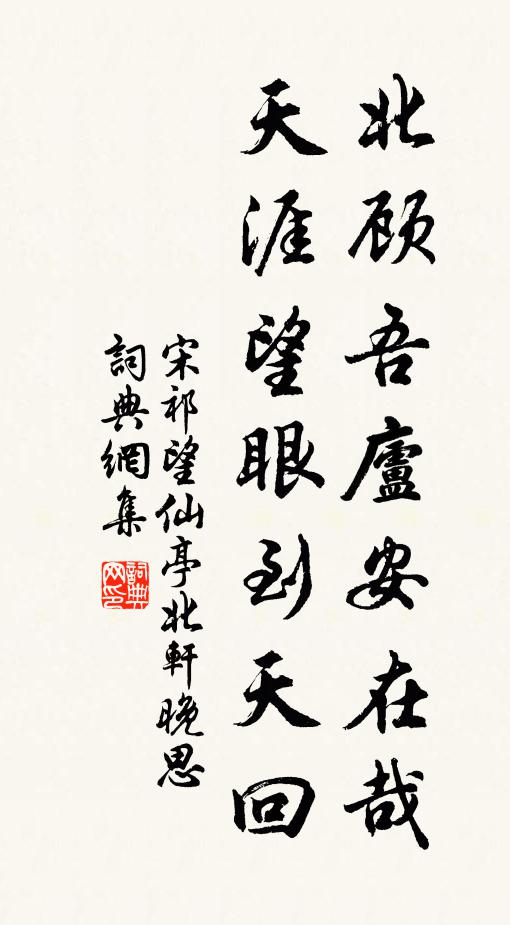 北顾吾廬安在哉
天涯望眼到天回
宋祁望仙亭北軒晚思
詞典網集
詞典网印